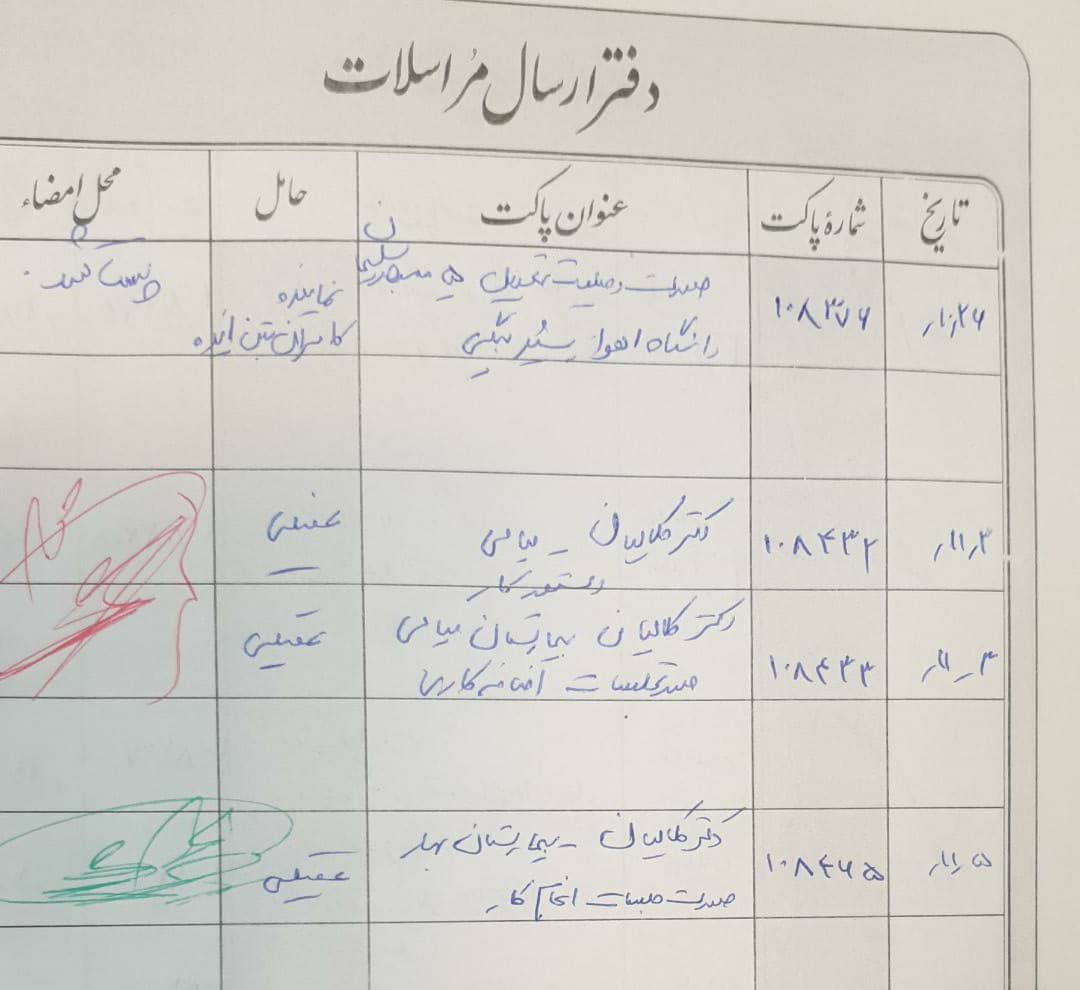 دفتر ارسال مُراسلات
تاریخ
شمارهٔ پاکت
عنوان پاکت
حامل
محل امضاء
۱۰٫۲۶
۱۰۸۳۷۶
صورت وضعیت تعدیل
دانشگاه اهواز
نماینده
۱۱٫۳
۱۰۸۴۳۲
دکتر کلالیان _ میامی
دستور کار
عقیلی
۱۱٫۳
۱۰۸۴۳۳
دکتر کلالیان بیمارستان میامی
صورتجلسات اضافه کاری
عقیلی
۱۱٫۵
۱۰۸۴۶۵
دکتر کلالیان _ بیمارستان بهار
صورت جلسات انجام کار
عقیلی